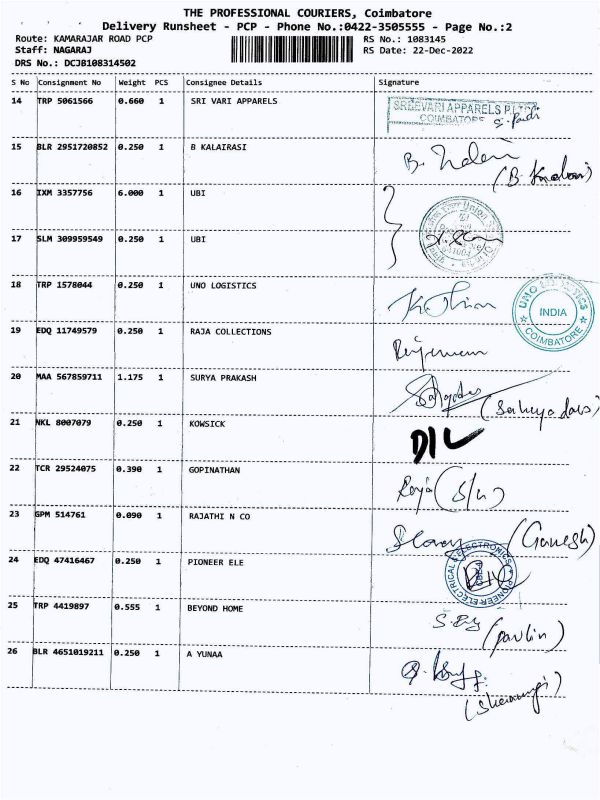 THE PROFESSIONAL COURIERS, Coimbatore
Delivery Runsheet - PCP - Phone No.:0422-3505555 - Page No.:2
Route: KAMARAJAR ROAD PCP RS No.: 1083145
Staff: NAGARAJ RS Date: 22-Dec-2022
DRS No.: DCJB108314502
S No Consignment No Weight PCS Consignee Details Signature
14 TRP 5061566 0.660 1 SRI VARI APPARELS
SREEVARI APPARELS P LTD
COIMBATORE
15 BLR 2951720852 0.250 1 B KALAIRASI
16 IXM 3357756 6.000 1 UBI
17 SLM 309959549 0.250 1 UBI
18 TRP 1578044 0.250 1 UNO LOGISTICS
UNO LOGISTICS
INDIA
COIMBATORE
19 EDQ 11749579 0.250 1 RAJA COLLECTIONS
20 MAA 567859711 1.175 1 SURYA PRAKASH
21 NKL 8007079 0.250 1 KOWSICK DIL
22 TCR 29524075 0.390 1 GOPINATHAN Raja (S/o)
23 GPM 514761 0.090 1 RAJATHI N CO (Ganesh)
24 EDQ 47416467 0.250 1 PIONEER ELE
PIONEER ELECTRICAL & ELECTRONICS
25 TRP 4419897 0.555 1 BEYOND HOME (pavlin)
26 BLR 4651019211 0.250 1 A YUNAA